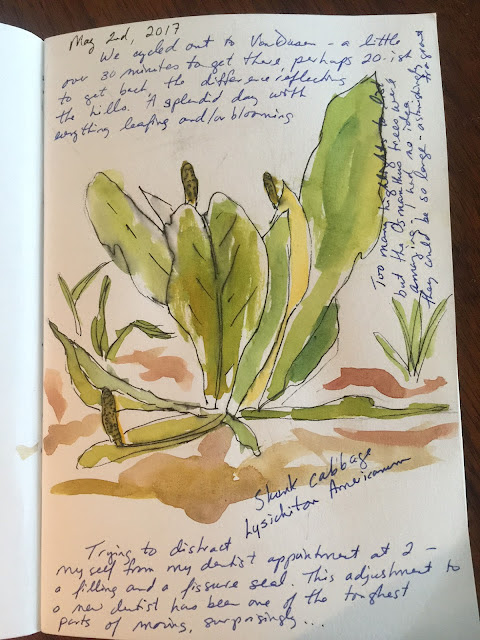 May 2nd, 2017
We cycled out to VanDusen - a little
over 30 minutes to get there, perhaps 20-ish
to get back, the difference reflecting
the hills. A splendid day with
everything leafing and/or blooming
Too many highlights to list
but the Osmanthus trees were
amazing. I had no idea
they could be so large - astoundingly fragrant
Skunk Cabbage
Lysichiton Americanum
Trying to distract
myself from my dentist appointment at 2 -
a filling and a fissure seal. This adjustment to
a new dentist has been one of the toughest
parts of moving, surprisingly...